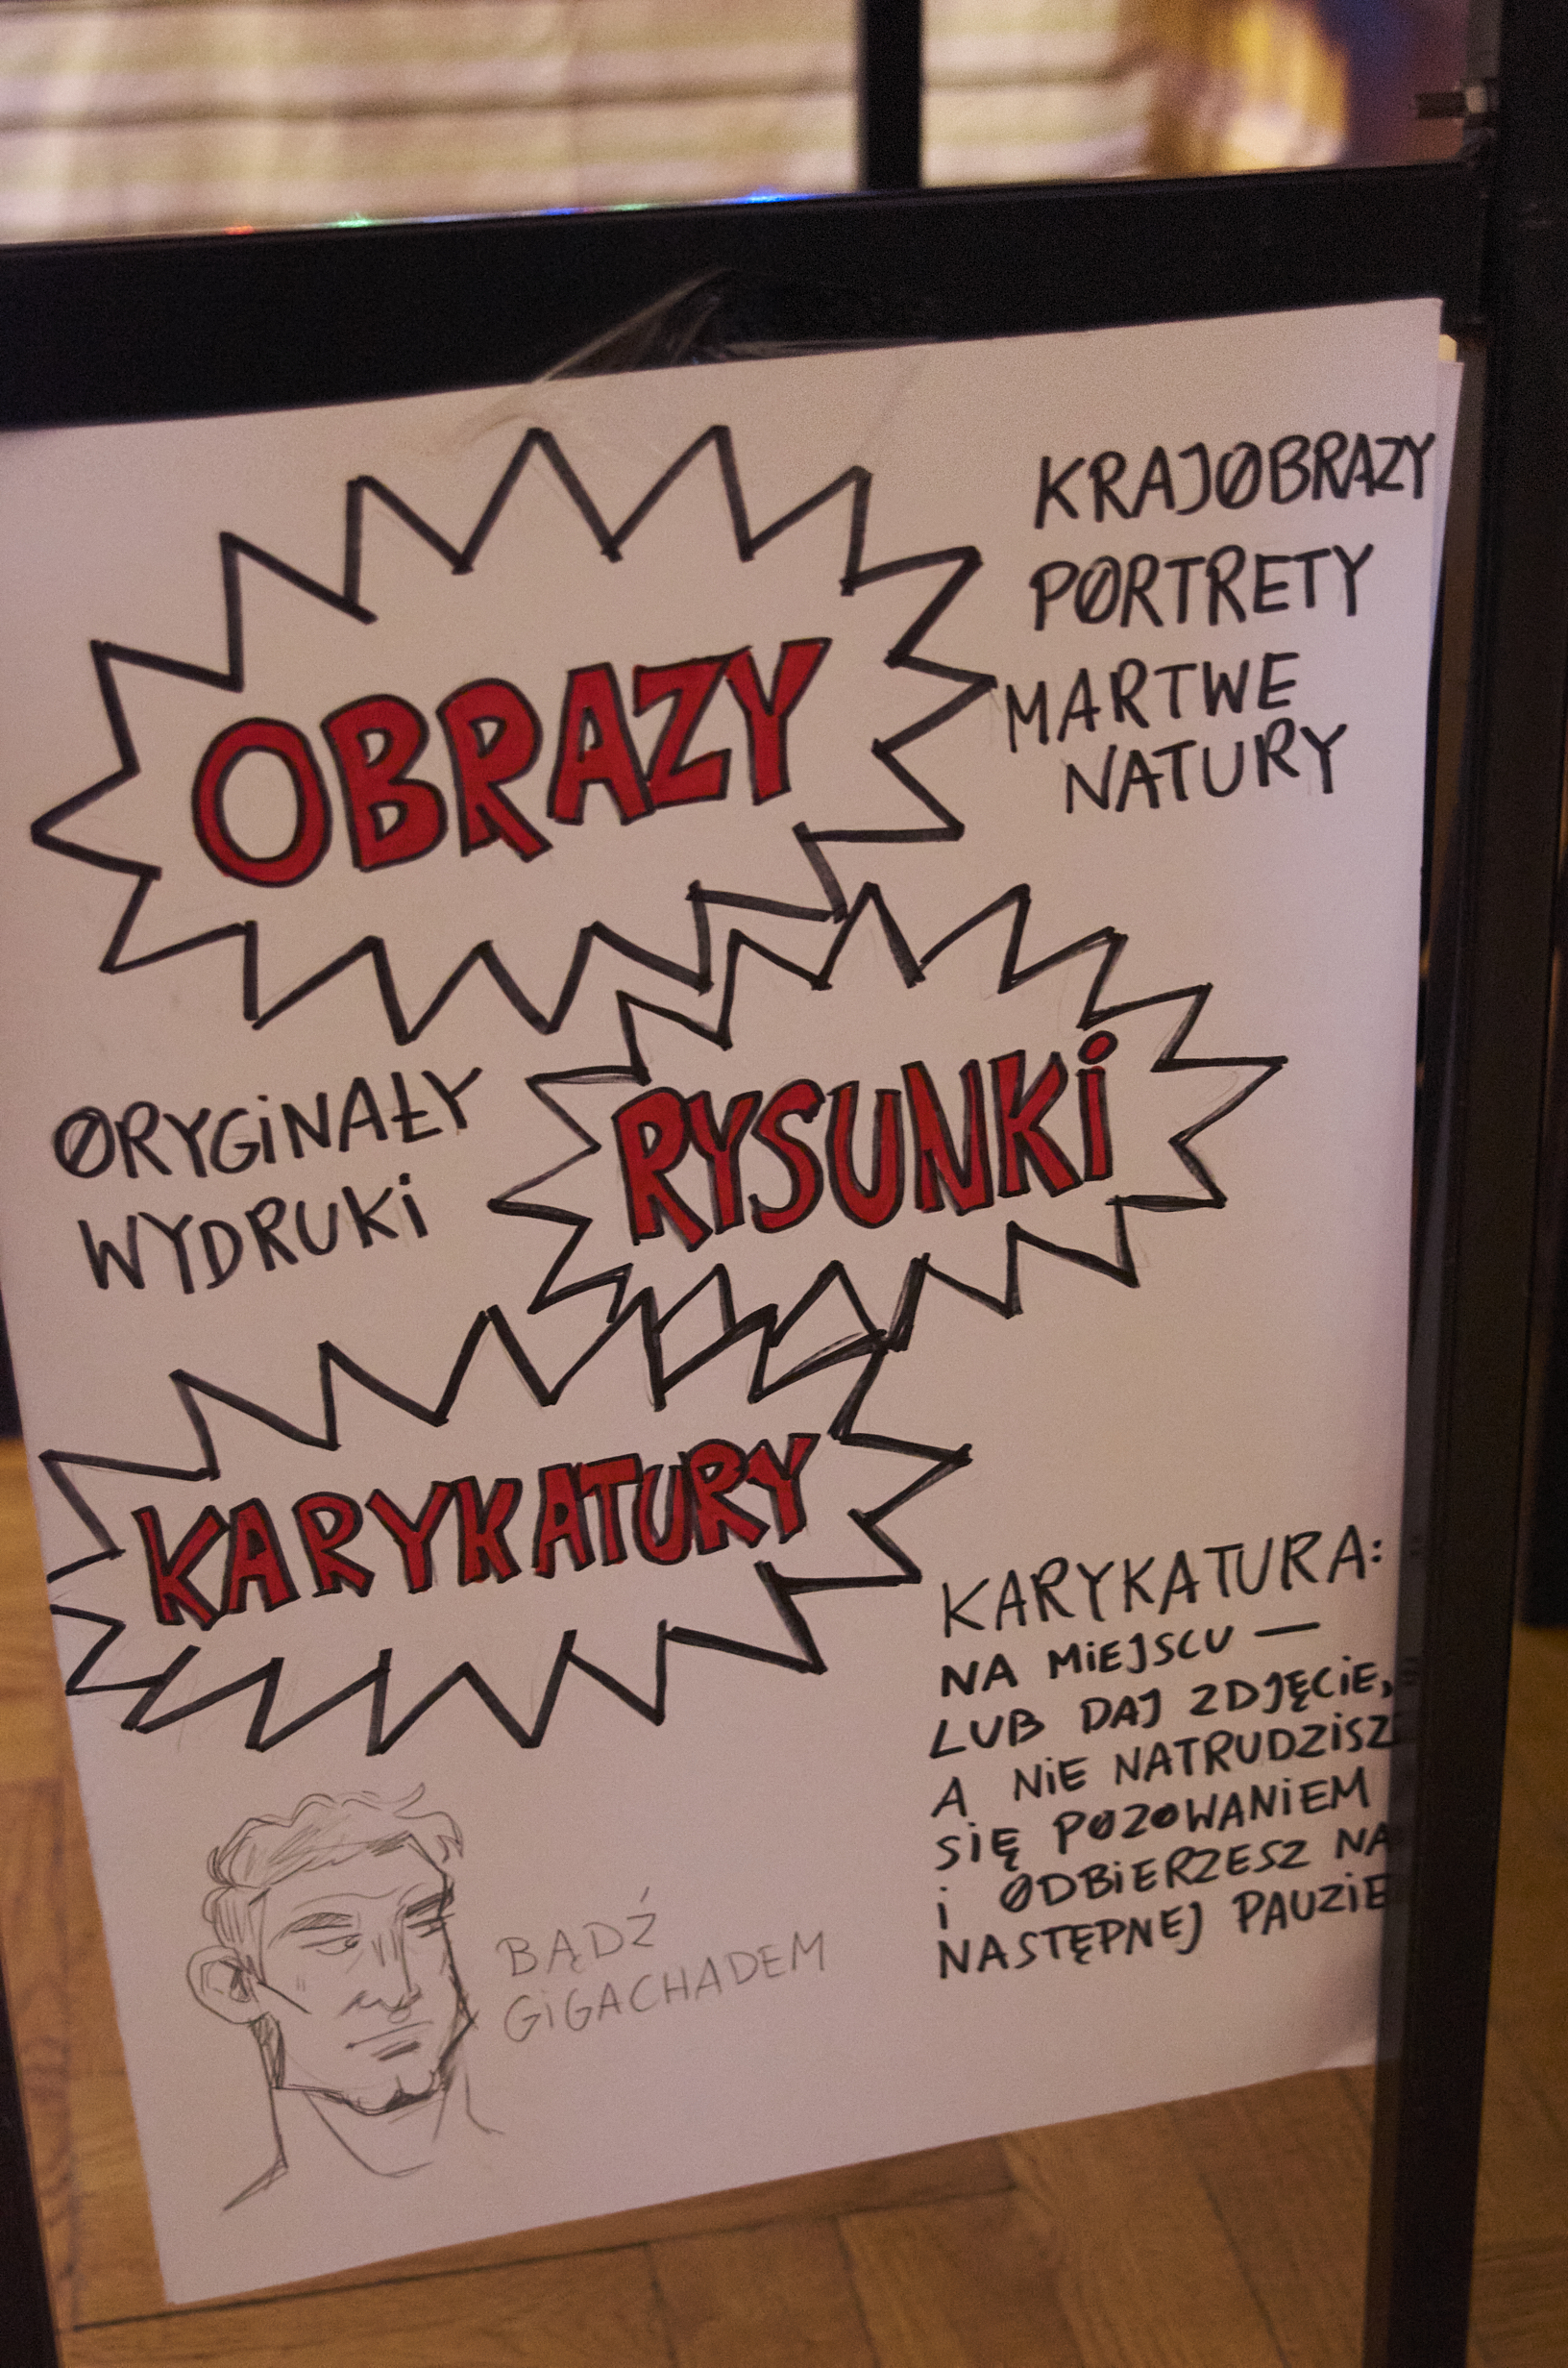 OBRAZY
KRAJOBRAZY
PORTRETY
MARTWE
NATURY
ORYGiNAŁY
WYDRUKi
RYSUNKi
KARYKATURY
KARYKATURA:
NA MiEJSCU —
LUB DAJ ZDJĘCiE,
A NiE NATRUDZiSZ
SiĘ POZOWANiEM
i ODBiERZESZ NA
NASTĘPNEJ PAUZiE
BĄDŹ
GiGACHADEM